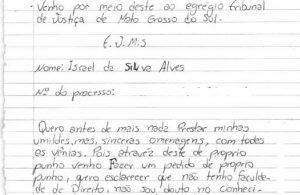 Venho por meio deste ao egrégio tribunal
de Justiça de Mato Grosso do Sul.
E.J.M.S
Nome: Israel da Silva Alves
Nº do processo:
Quero antes de mais nada Prestar minhas
umildes, mas, sinceras omenagens, com todas
as vênias. Pois atravéz deste de proprio
punho venho Fazer um pedido de proprio
punho, quero esclarecer que não tenho faculda-
de de Direito, não sou douto no conheci-